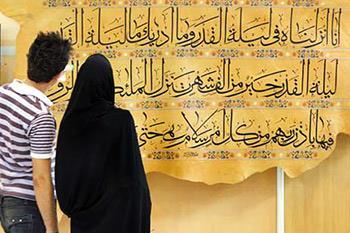 انا انزلناه فی لیلة القدر وما ادریک ما لیلة القد
لیلة القدر خیر من الف شهر تنزل الملئکة والرو
فیها باذن ربهم من کل امر سلام هی حتی